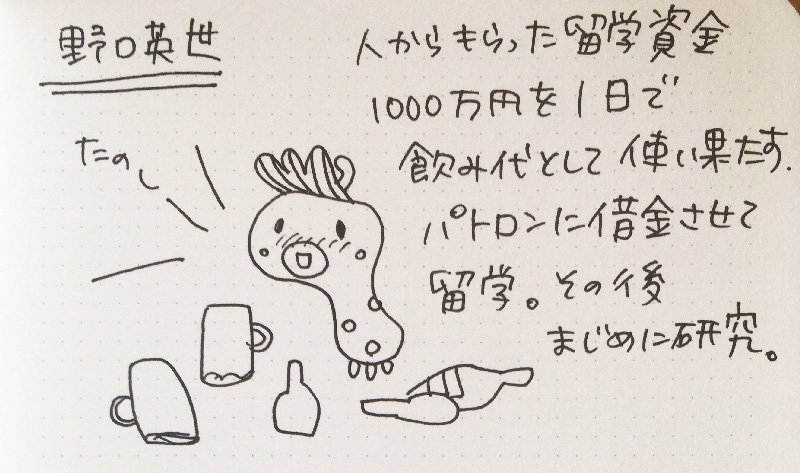 野口英世
人からもらった留学資金
1000万円を1日で
飲み代として使い果たす.
パトロンに借金させて
留学。その後
まじめに研究。
たのし